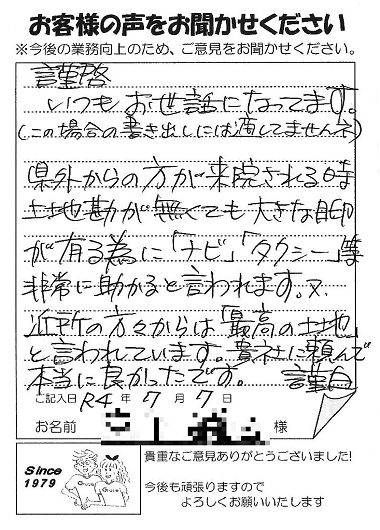 お客様の声をお聞かせください
※今後の業務向上のため、ご意見をお聞かせください。
謹啓
いつもお世話になってます。
(この場合の書き出しには適してませんネ)
県外からの方が来院される時
土地勘が無くても大きな目印
が有る為に「ナビ」「タクシー」等
非常に助かると言われます。又、
近所の方々からは「最高の土地」
と言われています。貴社に頼んで
本当に良かったです。 謹白
ご記入日 R4 年 7 月 7 日
お名前 様
Since
1979
貴重なご意見ありがとうございました!
今後も頑張りますので
よろしくお願いいたします